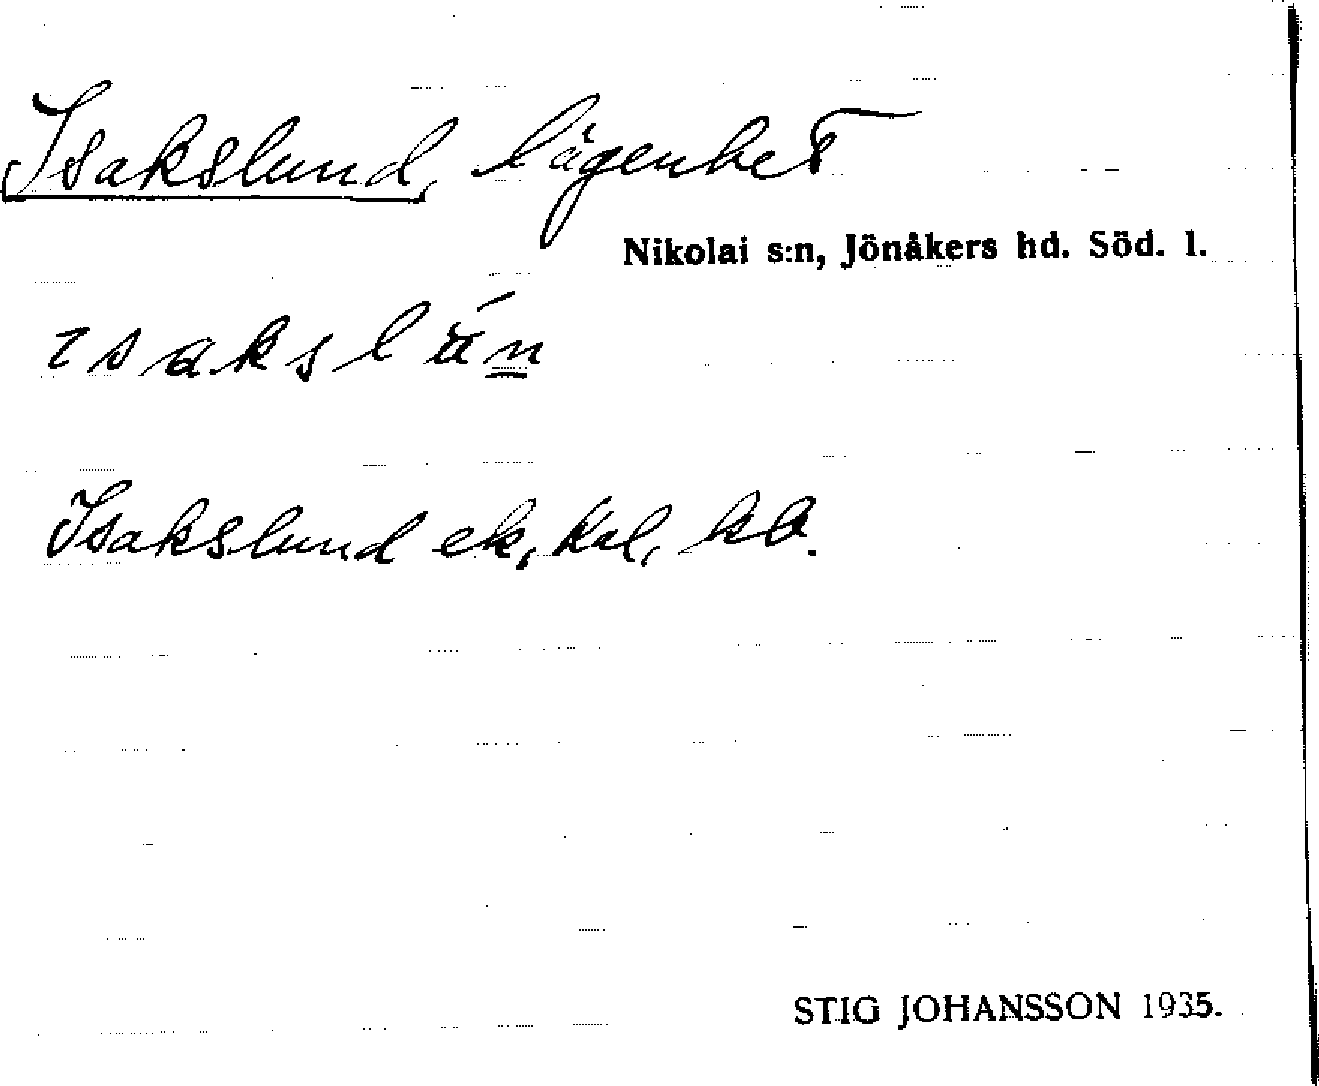 Isakslund, lägenhet
Nikolai s:n, Jönåkers hd. Söd. l.
ısakslä́n
Isakslund ek, kal, kb.
STIG JOHANSSON 1935.